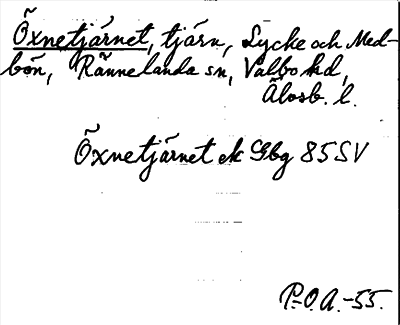 Öxnetjärnet, tjärn, Lycke och Med-
bön, Rännelanda sn, Valbo hd,
Älvsb. l.
Öxnetjärnet ek Gbg 85 SV
P.O.A. -55.